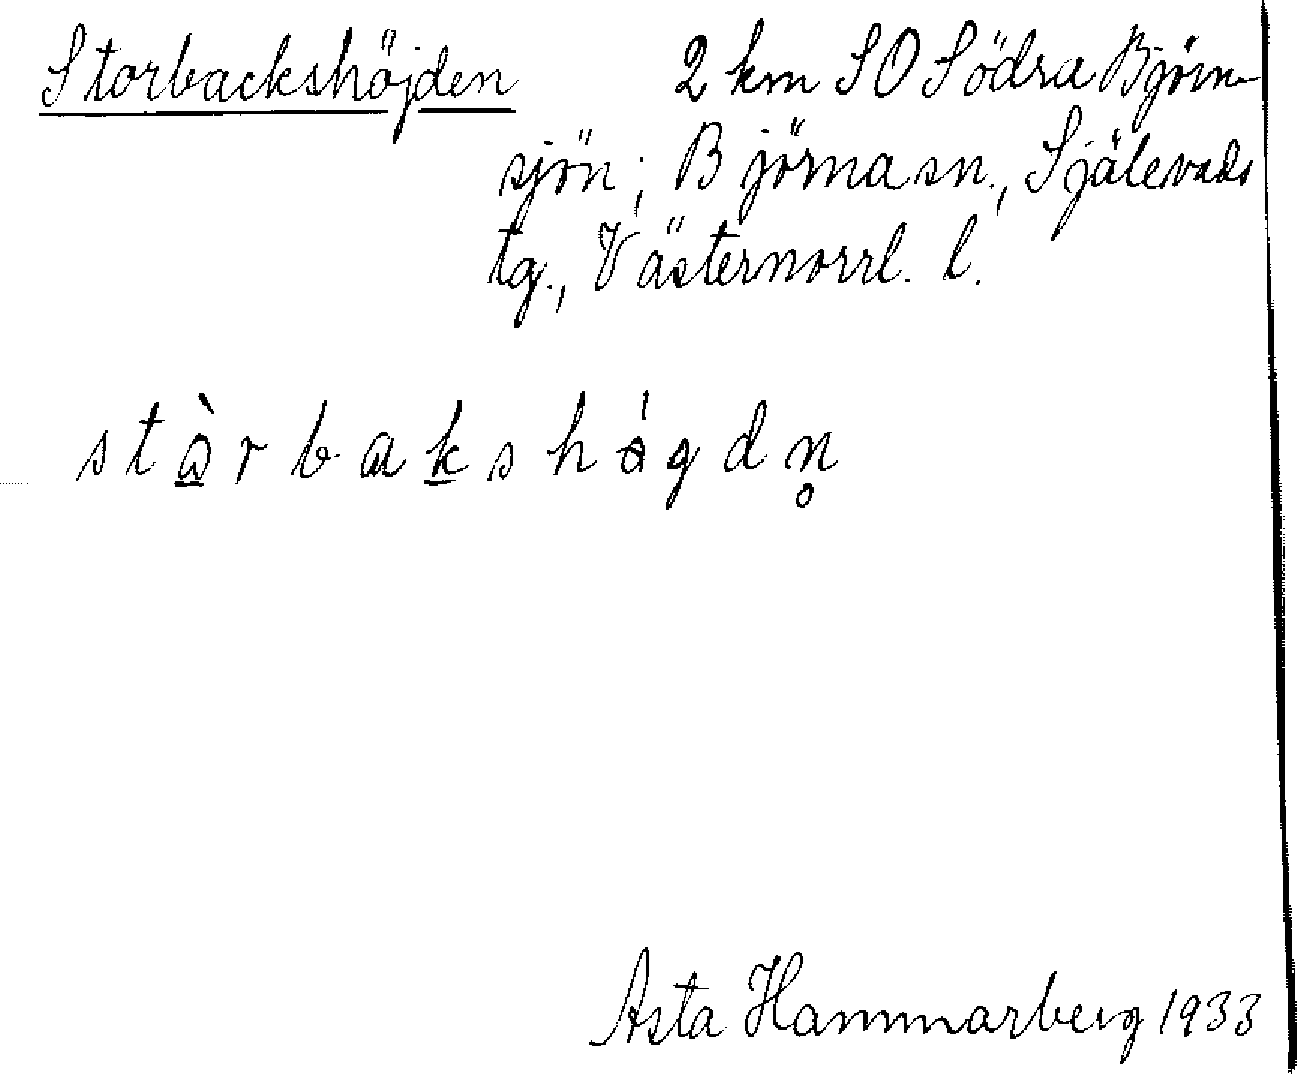 Storbackshöjden 2 km SO Södra Björn-
sjön; Björna sn., Själevads
tg., Västernorrl. l.
stàrbakshǿgdn̥
Asta Hammarberg 1933